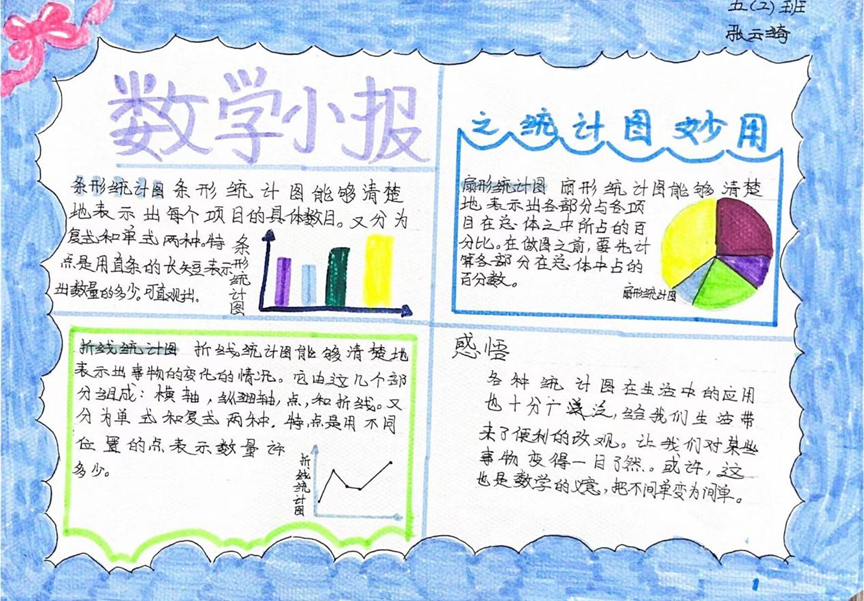 五(2)班
张云绮
数学小报
之统计图妙用
条形统计图 条形统计图能够清楚
地表示出每个项目的具体数目。又分为
复式和单式两种。特
点是用直条的长短表示
出数量的多少。可直观比。
条形统计图
扇形统计图 扇形统计图能够清楚
地表示出各部分与各项
目在总体之中所占的百
分比。在做图之前，要先计
算各部分在总体中占的
百分数。
扇形统计图
折线统计图 折线统计图能够清楚地
表示出事物的变化的情况。它由这几个部
分组成：横轴，纵轴，点，和折线。又
分为单式和复式两种，特点是用不同
位置的点表示数量许
多少。
折线统计图
感悟
各种统计图在生活中的应用
也十分广泛，给我们生活带
来了便利的改观。让我们对某些
事物变得一目了然。或许，这
也是数学的义意，把不间单变为间单。